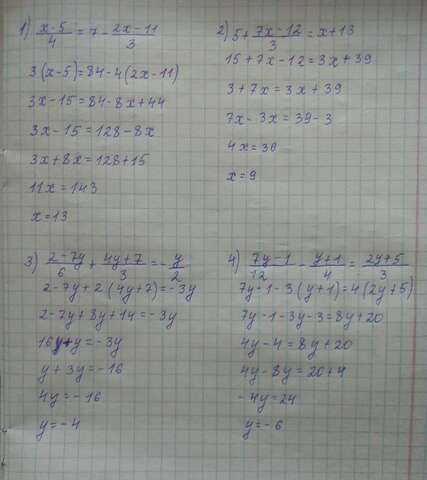 1) (x-5)/4 = 7 - (2x-11)/3
3(x-5)=84-4(2x-11)
3x-15=84-8x+44
3x-15=128-8x
3x+8x=128+15
11x=143
x=13
2) 5+(7x-12)/3=x+13
15+7x-12=3x+39
3+7x=3x+39
7x-3x=39-3
4x=36
x=9
3) (2-7y)/6+(4y+7)/3=-y/2
2-7y+2(4y+7)=-3y
2-7y+8y+14=-3y
16+y=-3y
y+3y=-16
4y=-16
y=-4
4) (7y-1)/12-(y+1)/4=(2y+5)/3
7y-1-3(y+1)=4(2y+5)
7y-1-3y-3=8y+20
4y-4=8y+20
4y-8y=20+4
-4y=24
y=-6